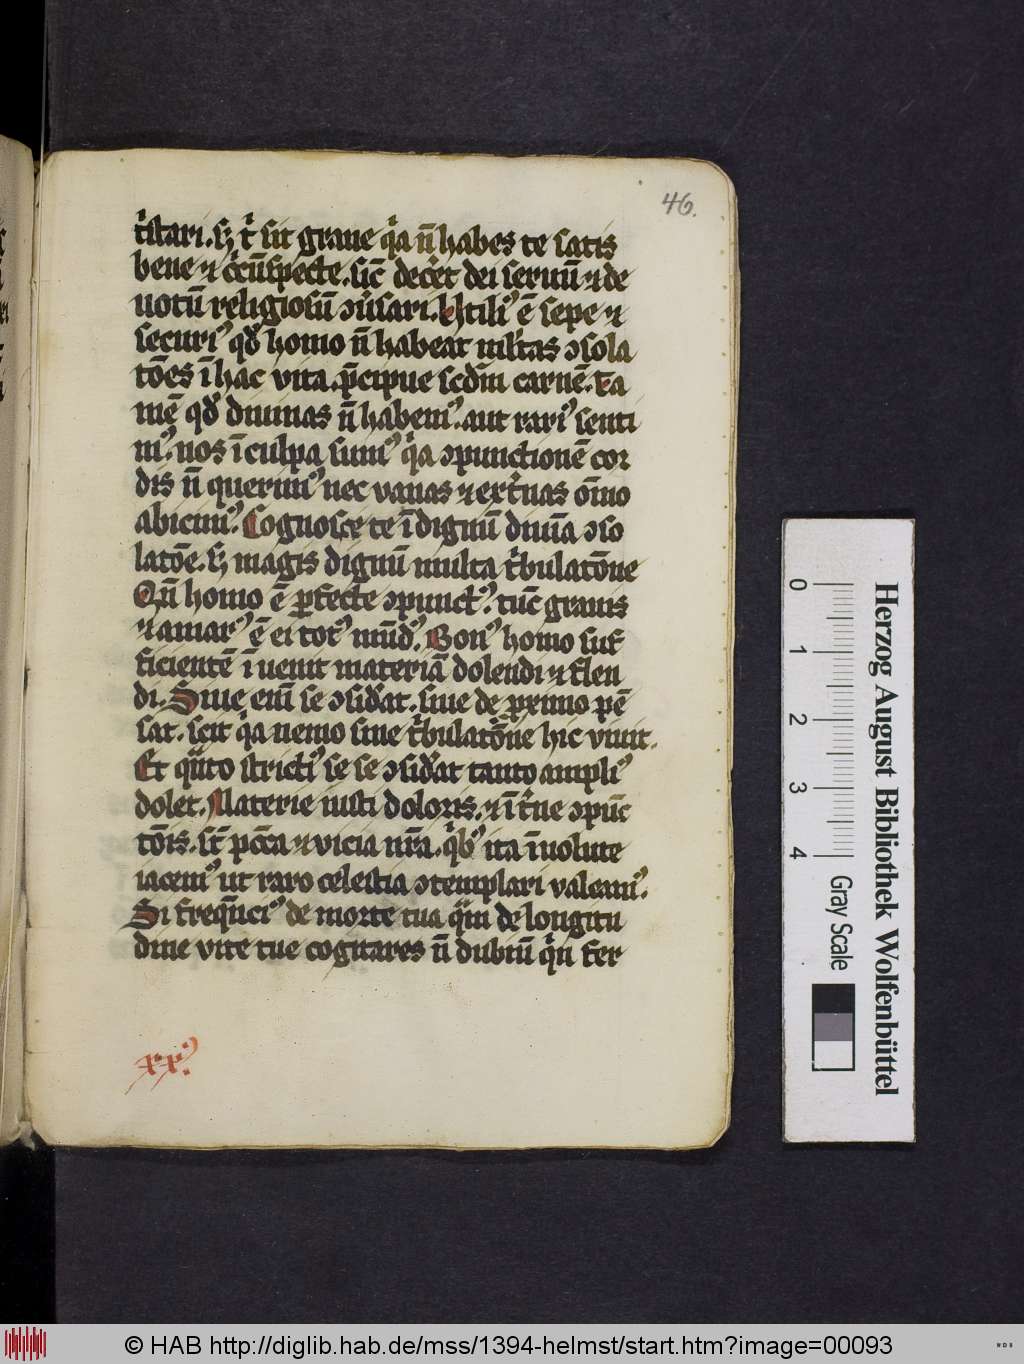 46.
t͛stari. sꝫ t͛ sit graue q͛a n̄ habes te satis
bene ⁊ c͛cūspecte. sic̄ dec͛et dei seruū ⁊ de
uotū religiosū ꝯu͛sari. Utiliꝰ ē sepe ⁊
securiꝰ qd̛ homo n̄ habeat ml̛tas ꝯsola
tōes ī hac vita. p̄cipue scdm̄ carnē. ta
mē qd̛ diuinas n̄ habemꝰ. aut rariꝰ senti
mꝰ. nos ī culpa sumꝰ q͛a ꝯpunctionē cor
dis n̄ querimꝰ nec vanas ⁊ ext͛nas oīno
abicimꝰ. Cognosce te īdignū diuīa ꝯso
latōe. sꝫ magis dignū multa t͛bulatōne
Qn̄ homo ē ꝑfecte ꝯpunctꝰ. tūc grauis
⁊ amarꝰ ē ei totꝰ mūdꝰ. Bonꝰ homo suf
ficientē īuenit materiā dolendi ⁊ flen
di. Siue em̄ se ꝯsid͛at. siue de ꝓximo pē
sat. scit q͛a nemo sine t͛bulatōne hic viuit.
Et qᷓnto strictiꝰ se se ꝯsid͛at tanto ampliꝰ
dolet. Materie iusti doloris. ⁊ īt͛ne ꝯpūc
tōis. st̄ pccā ⁊ vicia nr̄a. q͛bꝰ ita īuolute
iacemꝰ ut raro celestia ꝯtemplari valemꝰ.
Si freq̄nciꝰ de morte tua qᷓm de longitu
dine vite tue cogitares n̄ dubiū q͛n fer
xxꝰ
Herzog August Bibliothek Wolfenbüttel
0 1 2 3 4 Gray Scale
© HAB http://diglib.hab.de/mss/1394-helmst/start.htm?image=00093